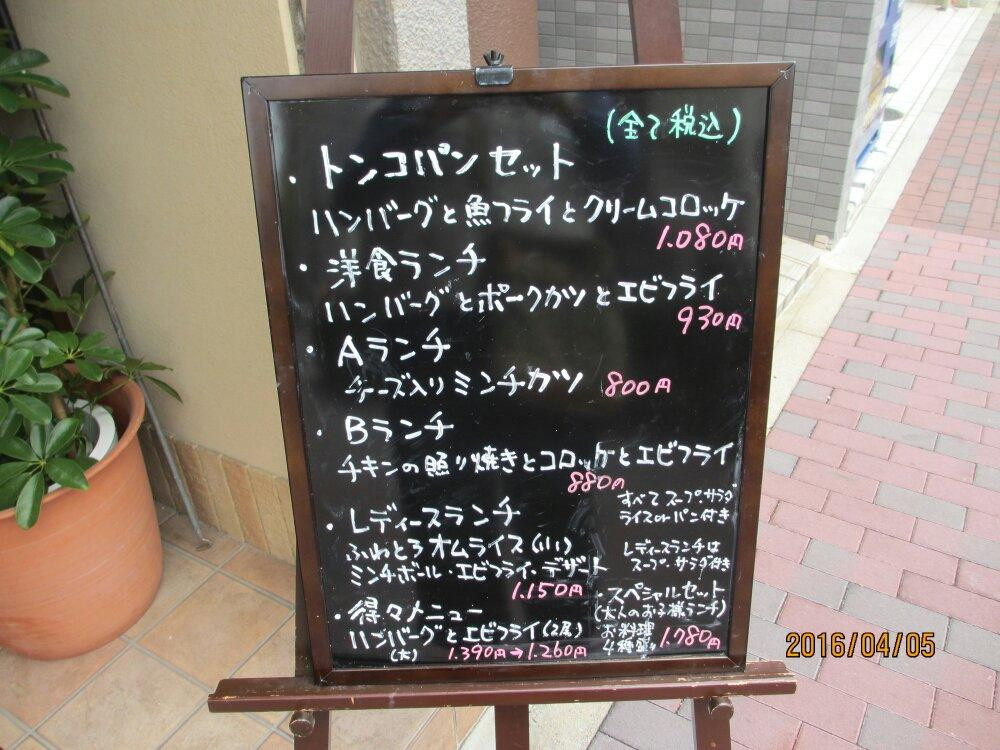 (全て税込)
・トンコパン セット
ハンバーグと魚フライとクリームコロッケ
1.080円
・洋食ランチ
ハンバーグとポークカツとエビフライ
930円
・Aランチ
チーズ入りミンチカツ 800円
・Bランチ
チキンの照り焼きとコロッケとエビフライ
880円
すべてスープサラダ
ライスorパン付き
・レディースランチ
ふわとろオムライス(小)
ミンチボール・エビフライ・デザート
1.150円
レディースランチは
スープ・サラダ付き
・得々メニュー
ハンバーグとエビフライ(2尾)
(大) 1.390円→1.260円
・スペシャルセット
(大人のお子様ランチ)
お料理
4種盛り 1.780円
2016/04/05